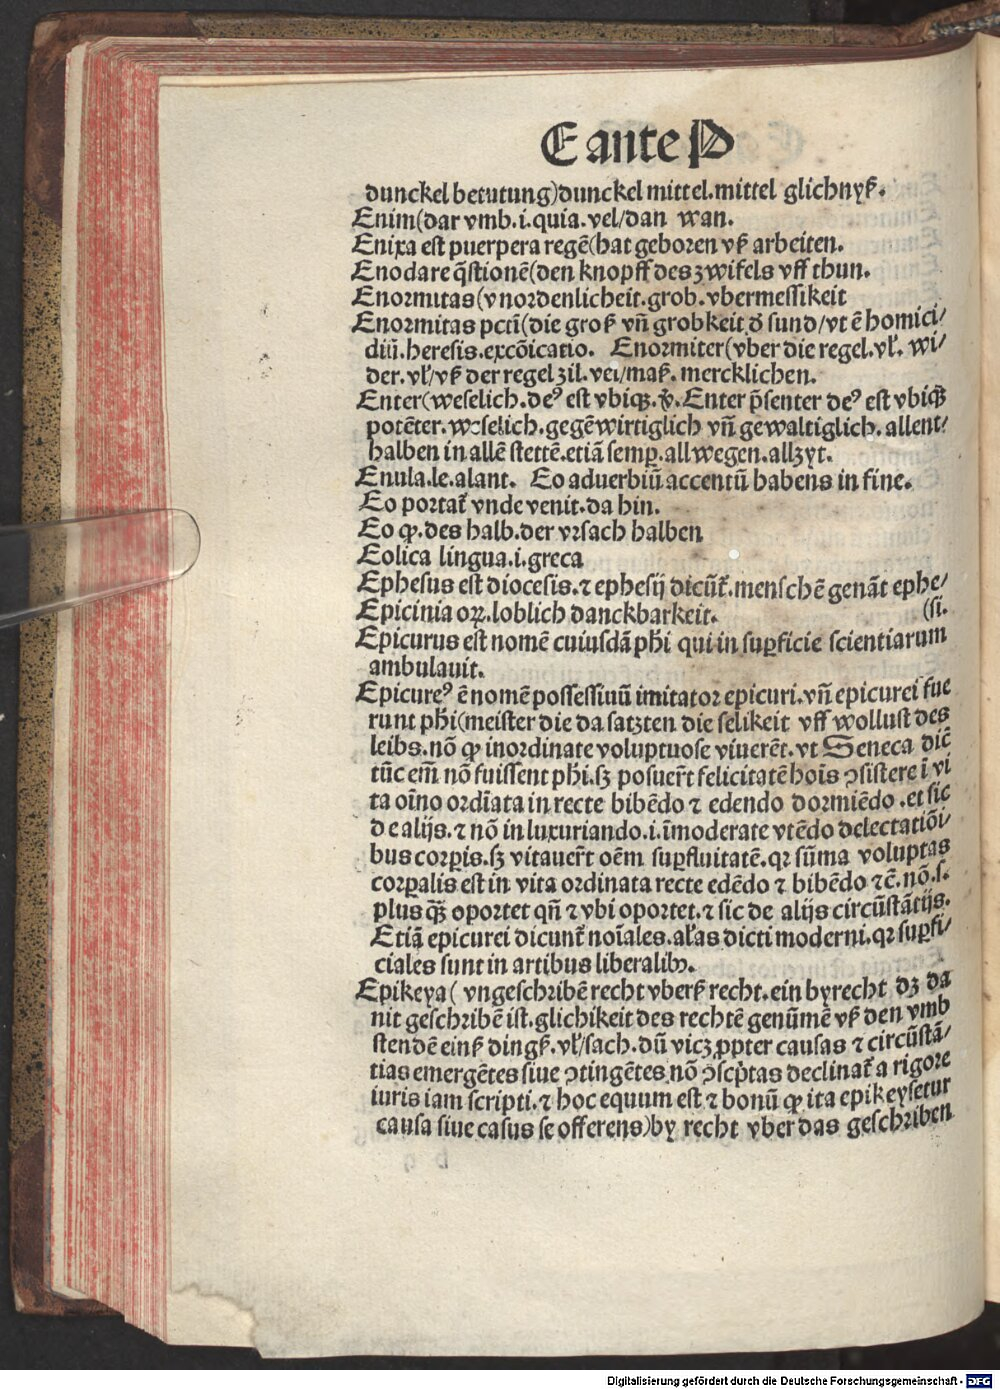 E ante P
dunckel betutung)dunckel mittel.mittel glichnyß.
Enim(dar vmb.i.quia.vel/dan wan.
Enixa est puerpera regē(hat geboren vß arbeiten.
Enodare q̄stionē(den knopff des zwifels vff thun.
Enormitas(vnordenlicheit.grob.vbermessikeit
Enormitas pctī(die groß vñ grobkeit d̕ sund/vt ē homici/
diū.heresis.excōicatio. Enormiter(vber die regel.vl̕. wi/
der.vl̕/vß der regel zil.vel/maß.mercklichen.
Enter(weselich.deꝰ est vbiqꝫ. Enter p̄senter deꝰ est vbiqꝫ
potēter.weselich.gegēwirtiglich vñ gewaltiglich.allent/
halben in allē stettē.etiā semꝑ.allwegen.allzyt.
Enula.le.alant. Eo aduerbiū accentū habens in fine.
Eo portat̕ vnde venit.da hin.
Eo ꝙ.des halb.der vrsach halben
Eolica lingua.i.greca
Ephesus est diocesis.⁊ ephesij dicūt̕.menschē genāt ephe/
Epicinia oꝝ.loblich danckbarkeit. (si.
Epicurus est nomē cuiusdā phi̕ qui in suꝑficie scientiarum
ambulauit.
Epicureꝰ ē nomē possessiuū imitator epicuri.vñ epicurei fue
runt phi̕(meister die da satzten die selikeit vff wollust des
leibs.nō ꝙ inordinate voluptuose viuerēt.vt Seneca dic̄
tūc em̄ nō fuissent phi̕.sꝫ posuer̄t felicitatē hoīs ꝯsistere ī vi
ta oīno ordīata in recte bibēdo ⁊ edendo dormiēdo.et sic
de alijs.⁊ nō in luxuriando.i.īmoderate vtēdo delectatiōi/
bus corꝑis.sꝫ vitauer̄t oēm suꝑfluitatē.qꝛ sūma voluptas
corꝑalis est in vita ordinata recte edēdo ⁊ bibēdo ⁊c̄.nō.s.
plus qꝫ̄ oportet qn̄ ⁊ vbi oportet.⁊ sic de alijs circūstātijs.
Etiā epicurei dicunt̕ noīales.al̕as dicti moderni.qꝛ suꝑfi/
ciales sunt in artibus liberalibꝰ.
Epikeya( vngeschribē recht vberß recht.ein byrecht dz da
nit geschribē ist.glichikeit des rechtē genūmē vß den vmb
stendē einß dingß.vl̕/sach.dū vicꝫ ꝓpter causas ⁊ circūstā/
tias emergētes siue ꝯtingētes nō ꝯscp̄tas declinat̕ a rigore
iuris iam scripti.⁊ hoc equum est ⁊ bonū ꝙ ita epikeysetur
causa siue casus se offerens)by recht vber das geschriben
Digitalisierung gefördert durch die Deutsche Forschungsgemeinschaft - DFG